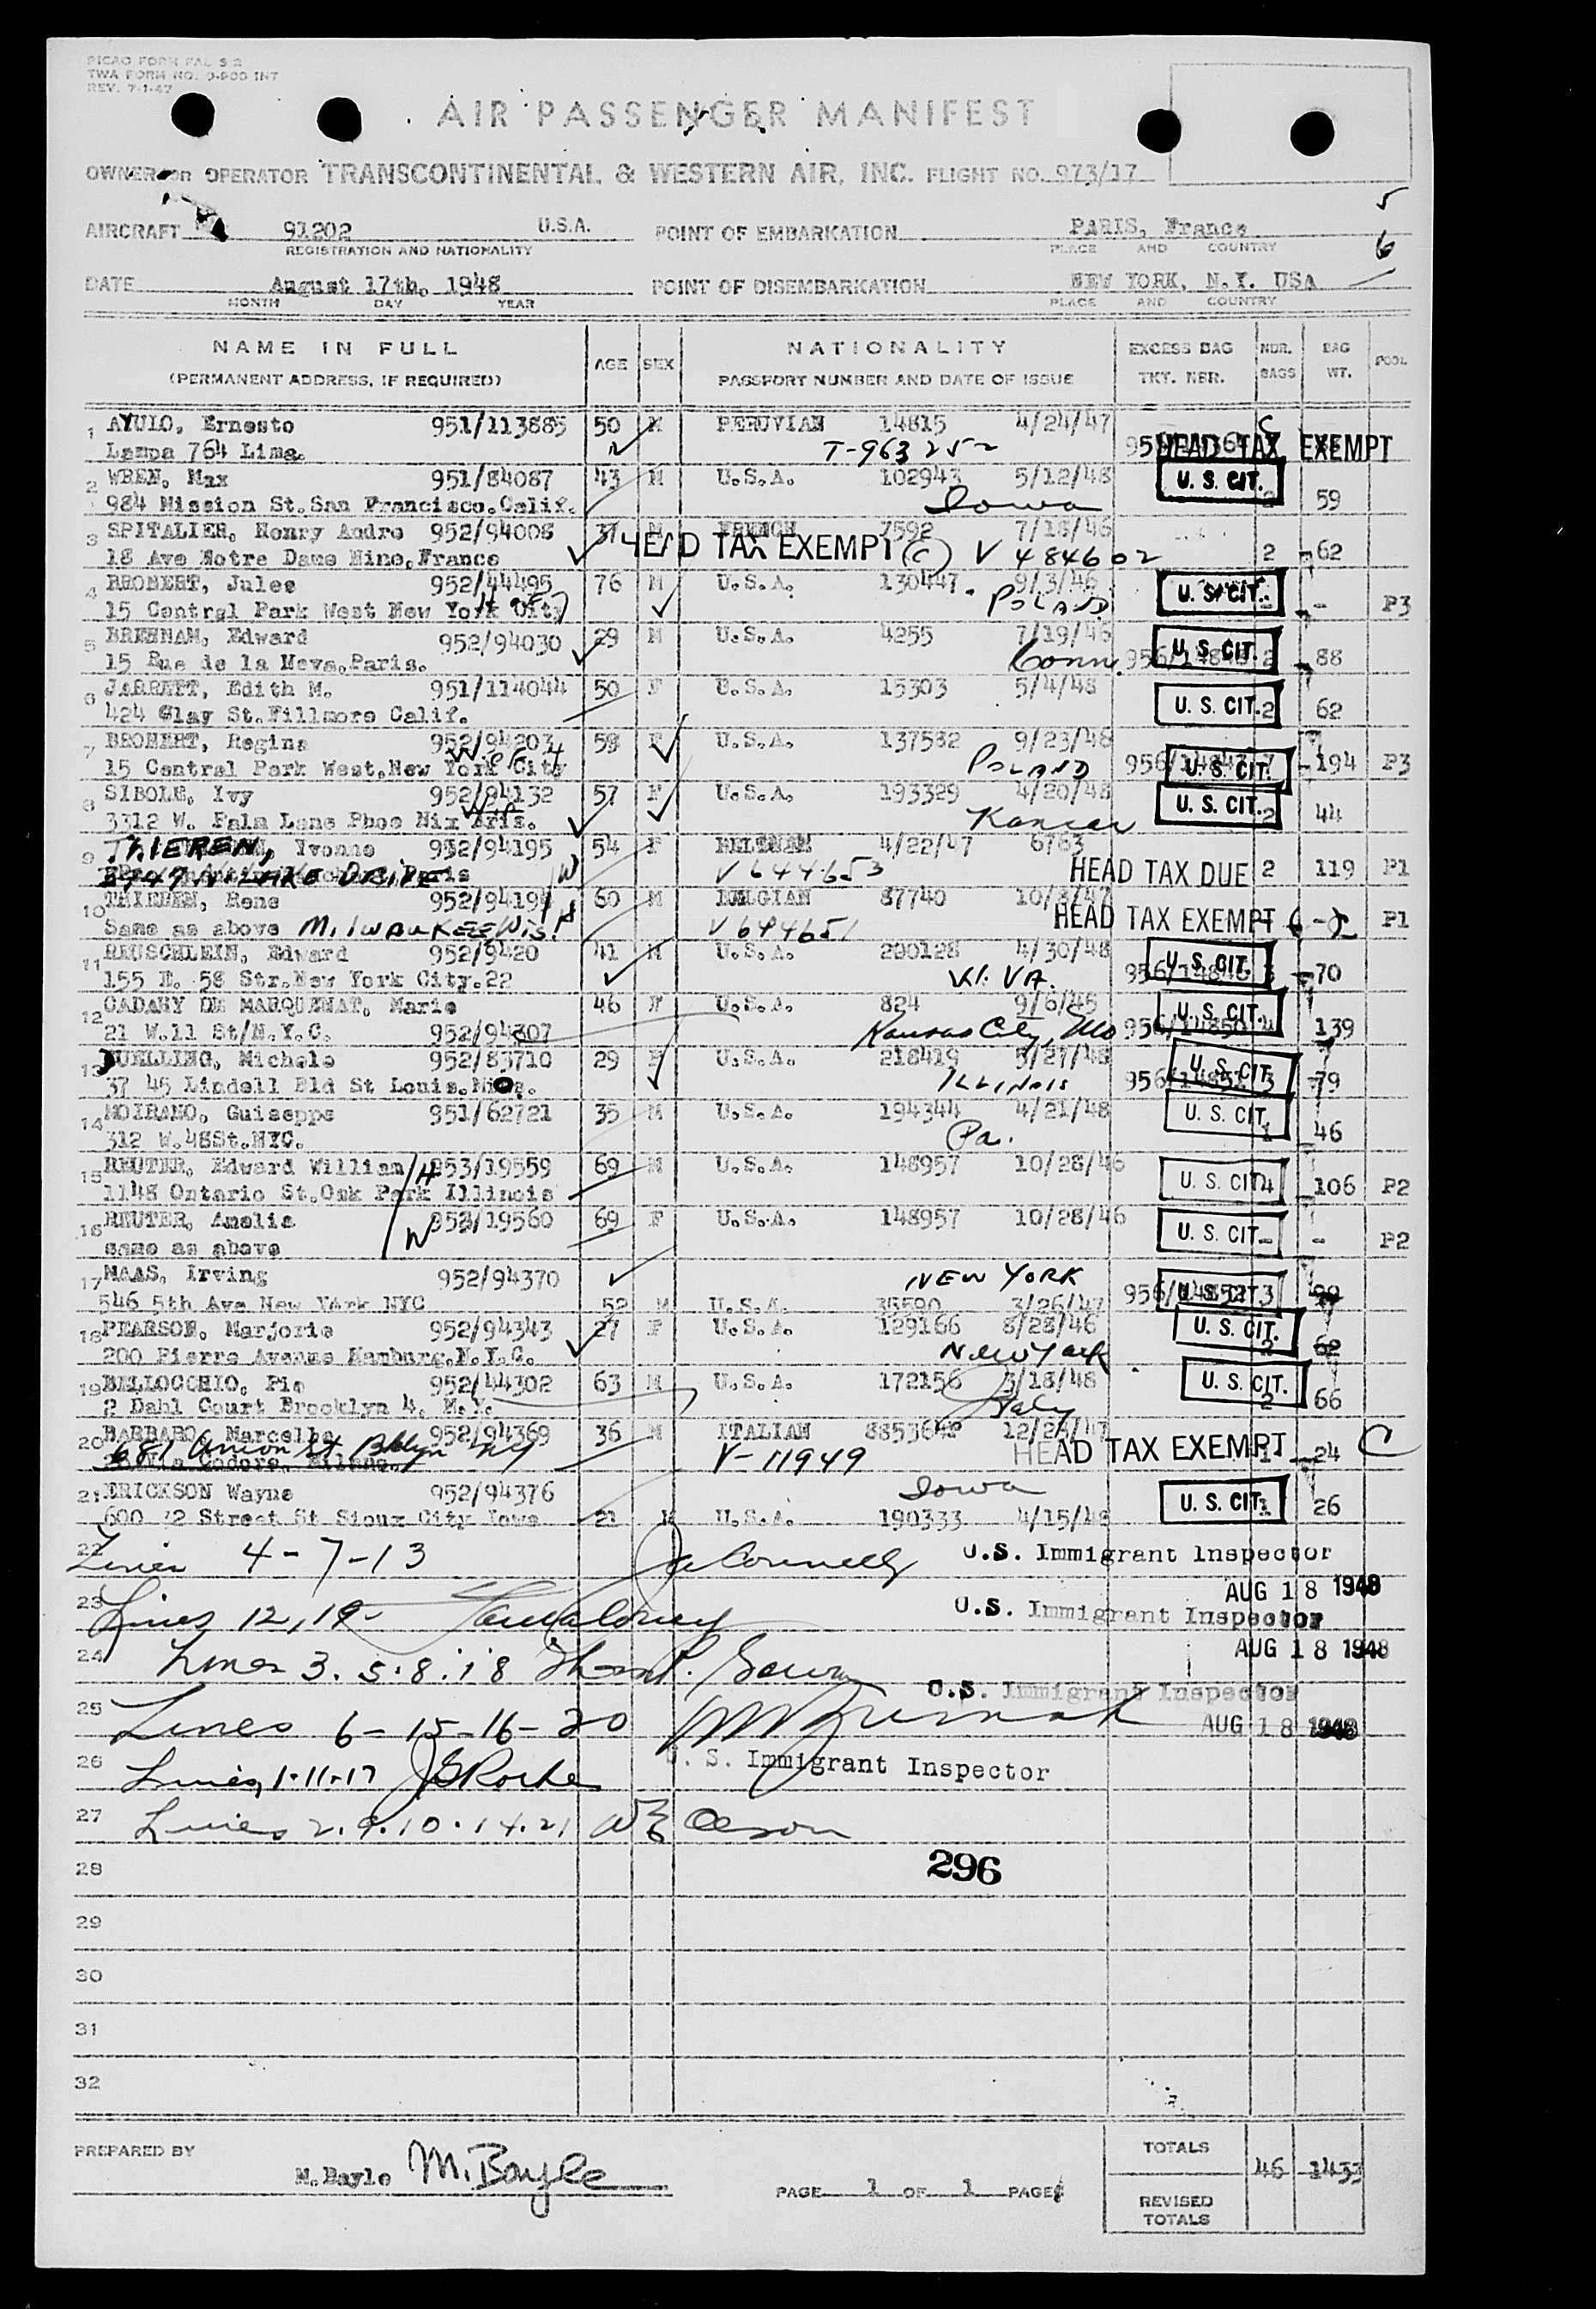 PICAO FORM FAL S 2
TWA FORM NO. 0-900 INT
REV. 7-1-47
AIR PASSENGER MANIFEST
OWNER OR OPERATOR TRANSCONTINENTAL & WESTERN AIR, INC. FLIGHT NO. 973/17
5
AIRCRAFT 91202 U.S.A. POINT OF EMBARKATION PARIS, France
REGISTRATION AND NATIONALITY PLACE AND COUNTRY
6
DATE August 17th, 1948 POINT OF DISEMBARKATION NEW YORK, N.Y. USA
MONTH DAY YEAR PLACE AND COUNTRY
NAME IN FULL AGE SEX NATIONALITY EXCESS BAG NBR. BAG POOL
(PERMANENT ADDRESS, IF REQUIRED) PASSPORT NUMBER AND DATE OF ISSUE TKT. NBR. BAGS WT.
1 AYULO, Ernesto 951/113885 50 M PERUVIAN 14815 4/24/47
Lampa 764 Lima. T-963252 HEAD TAX EXEMPT
2 WREN, Max 951/84087 43 M U.S.A. 102943 5/12/48 U. S. CIT.
984 Mission St.San Francisco.Calif. Iowa 59
3 SPITALIER, Henry Andre 952/94008 37 M FRENCH 7592 7/18/46
18 Ave Notre Dame Nine,France HEAD TAX EXEMPT (C) V 484602 2 62
4 BRONERT, Jules 952/44495 76 M U.S.A. 130447 9/3/46 U. S. CIT.
15 Central Park West New York City POLAND - - P3
5 BRENNAN, Edward 952/94030 29 M U.S.A. 4255 7/19/46 U. S. CIT.
15 Rue de la Neva,Paris. Conn. 2 88
6 JARRATT, Edith M. 951/114044 50 F U.S.A. 15303 5/4/48 U. S. CIT.
424 Clay St.Fillmore Calif. 2 62
7 BRONERT, Regina 952/94203 58 F U.S.A. 137582 9/23/48
15 Central Park West,New York City POLAND U. S. CIT. 194 P3
8 SIBOLE, Ivy 952/94132 57 F U.S.A. 193329 4/20/48 U. S. CIT.
3312 W. Palm Lane Phoe Nix Aris. Kansas 2 44
9 THIEREN, Yvonne 952/94195 54 F 4/22/47 6763
3747 N. LAKE DRIVE V 644653 HEAD TAX DUE 2 119 P1
10 THIEREN, Rene 952/94194 60 M BELGIAN 87740 10/8/47
Same as above MILWAUKEE Wis. V644651 HEAD TAX EXEMPT P1
11 REUSCHLEIN, Edward 952/9420 41 M U.S.A. 200128 4/30/48 U. S. CIT.
155 E. 58 Str.New York City.22 W. VA. 3 70
12 CADABY DE MARQUENAT, Marie 46 F U.S.A. 824 9/6/45 U. S. CIT.
21 W.11 St/N.Y.C. 952/94307 Kansas City, Mo 956/14850 4 139
13 DUELLING, Michele 952/83710 29 F U.S.A. 218419 5/27/48 U. S. CIT.
37 45 Lindell Bld St Louis. Mo. ILLINOIS 3 79
14 MOIRANO, Guiseppe 951/62721 35 M U.S.A. 194344 4/21/48 U. S. CIT.
312 W.48St.NYC. Pa. 1 46
15 REUTER, Edward William H 953/19559 69 M U.S.A. 148957 10/28/46 U. S. CIT.
1148 Ontario St.Oak Park Illinois 4 106 P2
16 REUTER, Amelia W 953/19560 69 F U.S.A. 148957 10/28/46 U. S. CIT.
same as above - - P2
17 MAAS, Irving 952/94370 NEW YORK U. S. CIT.
546 5th Ave New York NYC 52 M U.S.A. 35590 3/26/47 3
18 PEARSON, Marjorie 952/94343 27 F U.S.A. 129166 8/28/46 U. S. CIT.
200 Pierre Avenue Hamburg.N.Y.C. New York 2 62
19 BELLOCCHIO, Pio 952/44302 63 M U.S.A. 172156 3/18/48 U. S. CIT.
2 Dahl Court Brooklyn 4, N.Y. Italy 2 66
20 BARBARO, Marcello 952/94369 36 M ITALIAN 12/24/47
687 Union St. Bklyn NY V-11949 HEAD TAX EXEMPT 1 24 C
21 ERICKSON Wayne 952/94376 Iowa U. S. CIT.
600 42 Street St Sioux City Iowa 21 M U.S.A. 190333 4/15/48 1 26
22 Lines 4-7-13 U.S. Immigrant Inspector
AUG 18 1948
23 Lines 12, 19- U.S. Immigrant Inspector
AUG 18 1948
24 Lines 3.5.8.18
U.S. Immigrant Inspector
25 Lines 6-15-16-20 AUG 18 1948
U. S. Immigrant Inspector
26 Lines, 1-11-17 JG Roche
27 Lines 2.9.10.14.21 WE Olson
28 296
29
30
31
32
PREPARED BY M.Bayle M. Bayle
PAGE 1 OF 1 PAGES
TOTALS 46 1433
REVISED TOTALS